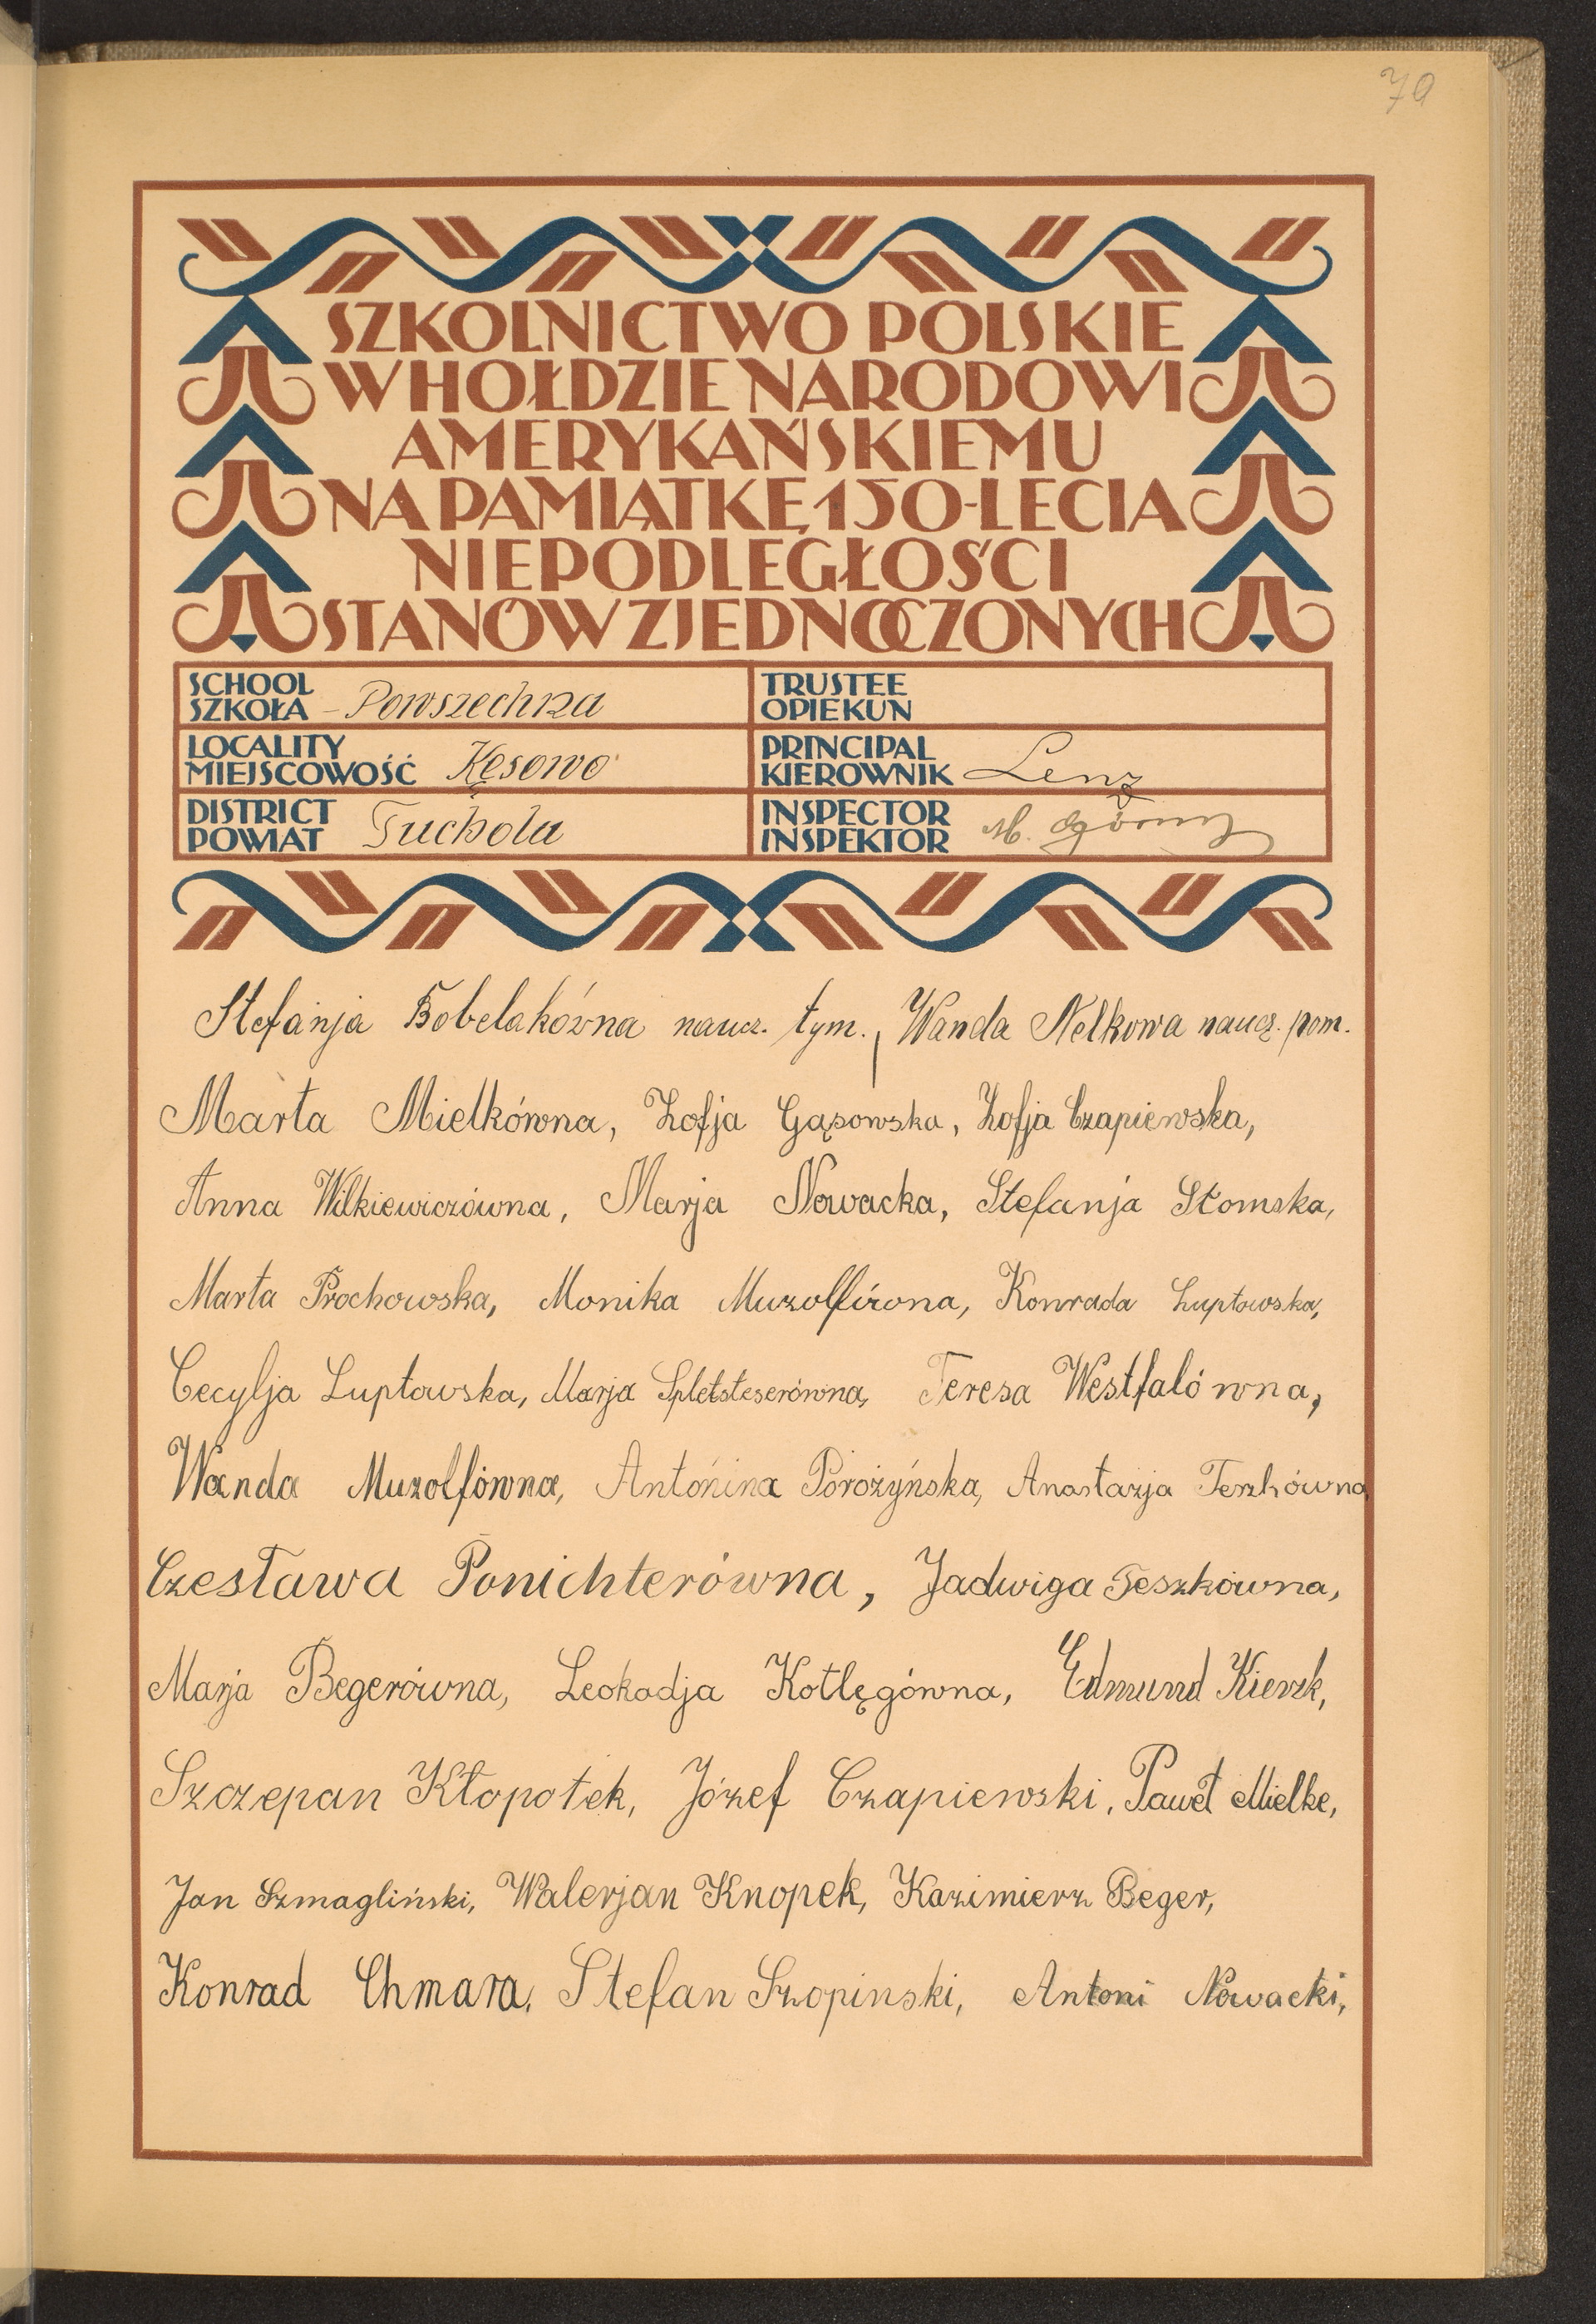 79
SZKOLNICTWO POLSKIE
W HOŁDZIE NARODOWI
AMERYKAŃSKIEMU
NA PAMIĄTKĘ 150-LECIA
NIEPODLEGŁOŚCI
STANÓW ZJEDNOCZONYCH
SCHOOL
SZKOŁA - Powszechna
TRUSTEE
OPIEKUN
LOCALITY
MIEJSCOWOŚĆ Kęsowo
PRINCIPAL
KIEROWNIK Lenz
DISTRICT
POWIAT Tuchola
INSPECTOR
INSPEKTOR M. Górny
Stefanja Bobelakówna naucz. tym., Wanda Nelkowa naucz. pom.
Marta Mielkówna, Zofja Gąsowska, Zofja Czapiewska,
Anna Wilkiewiczówna, Marja Nowacka, Stefanja Słomska,
Marta Prochowska, Monika Muzolfówna, Konrada Luptowska,
Cecylja Luptowska, Marja Spletsteserówna, Teresa Westfalówna,
Wanda Muzolfówna, Antónina Porożyńska, Anastazja Teszkówna
Czesława Ponichterówna, Jadwiga Teszkówna,
Marja Begerówna, Leokadja Kotlęgówna, Edmund Kierzk,
Szczepan Kłopotek, Józef Czapiewski, Paweł Mielke,
Jan Szmagliński, Walerjan Knopek, Kazimierz Beger,
Konrad Chmara, Stefan Szopinski, Antoni Nowacki,